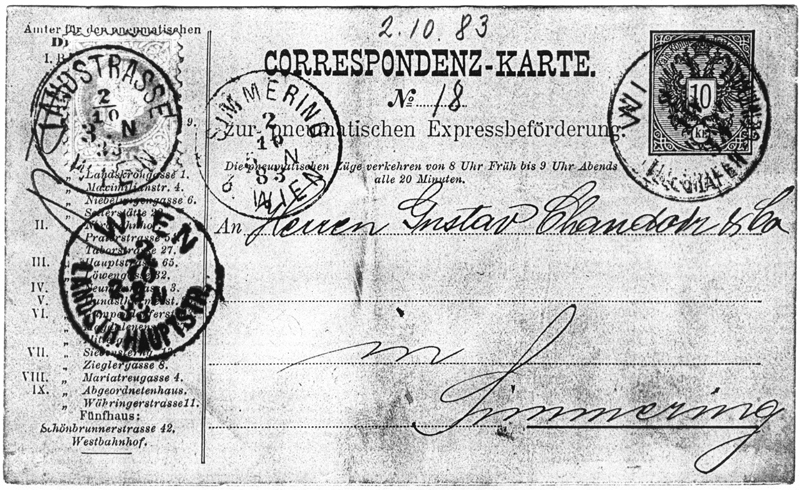 2.10.83
Ämter für den pneumatischen
CORRESPONDENZ-KARTE.
No 18
zur pneumatischen Expressbeförderung.
Die pneumatischen Züge verkehren von 8 Uhr Früh bis 9 Uhr Abends
alle 20 Minuten.
10
KR
LANDSTRASSE
2/10
3 N
83
WIEN
SIMMERING
2
10
N
83
WIEN
WIEN
9.
„ Landskrongasse 1.
„ Maximilianstr. 4.
„ Niebelungengasse 6.
„ Seilerstätte 22.
II.
Praterstrasse
„ Taborstrasse 27.
III. „ Hauptstrasse 65.
„ Löwengasse
IV. 3.
V.
VI.
VII. „
„ Zieglergasse 8.
VIII. „ Mariatreugasse 4.
IX. „ Abgeordnetenhaus.
„ Währingerstrasse 11.
Fünfhaus:
Schönbrunnerstrasse 42,
Westbahnhof.
WIEN
LANDSTR. HAUPTSTR.
An Herren Gustav Chaudoir & Co
in
Simmering